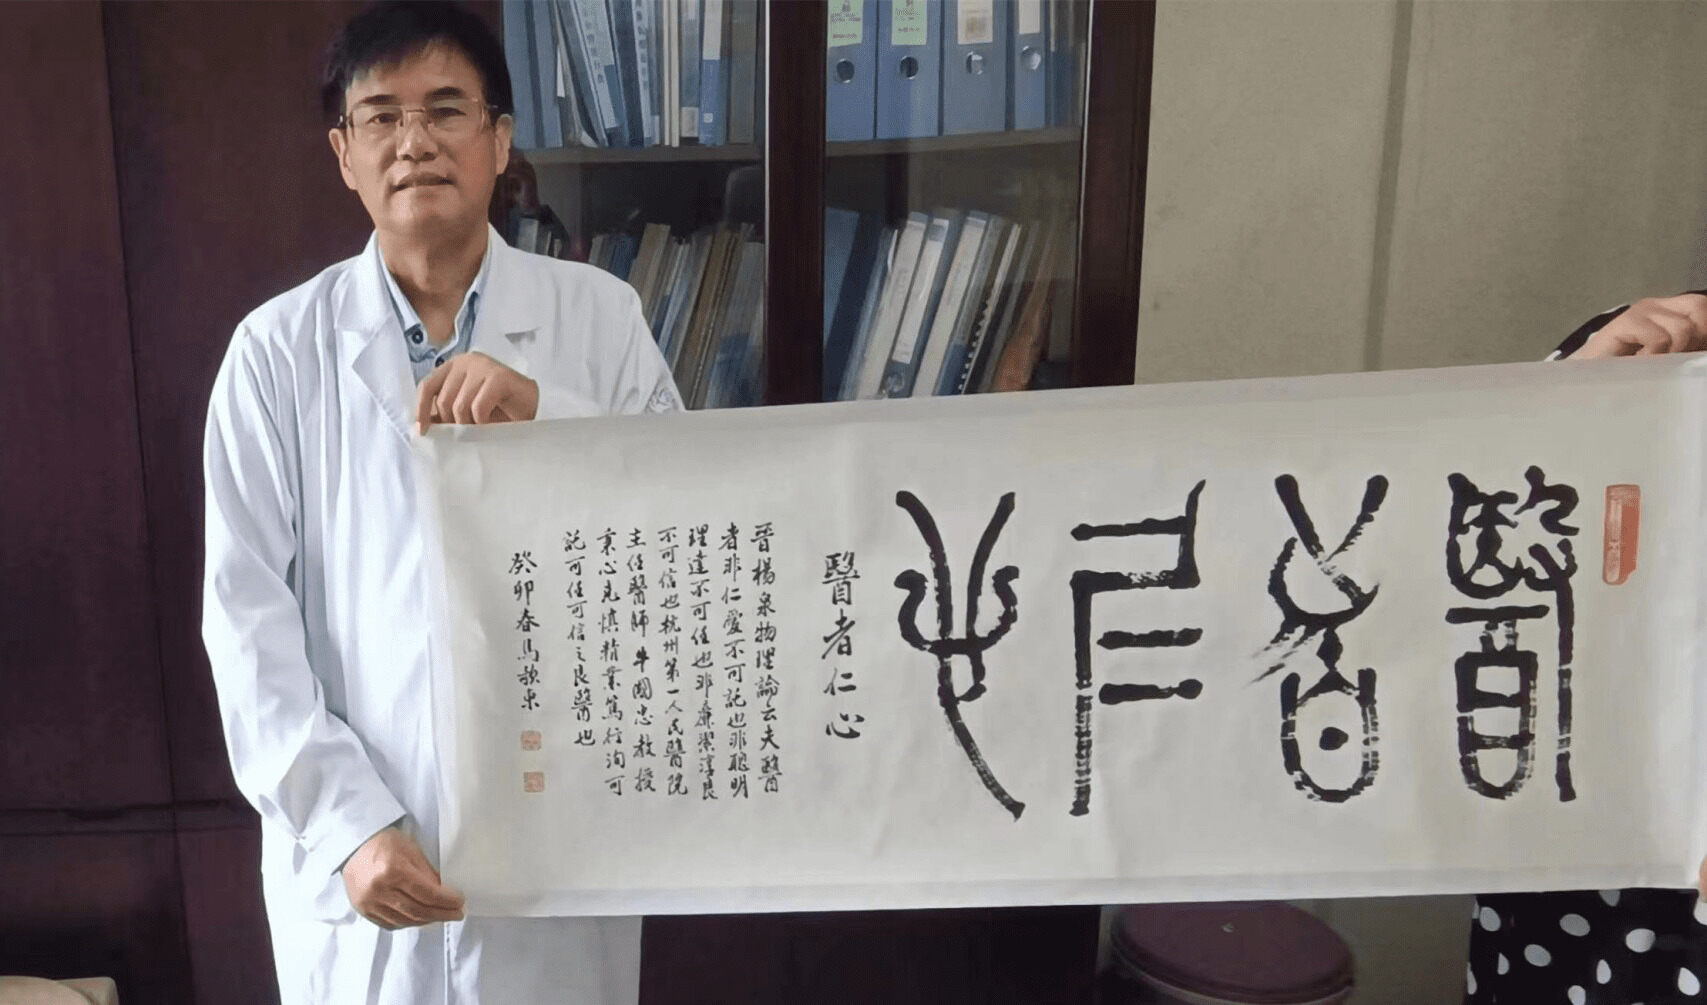 醫者仁心
醫者仁心
晉楊泉物理論云夫醫
者非仁愛不可託也非聰明
理達不可任也非廉潔淳良
不可信也杭州第一人民醫院
主任醫師牛國忠教授
秉心見慎精業篤行洵可
託可任可信之良醫也
癸卯春馬歌東